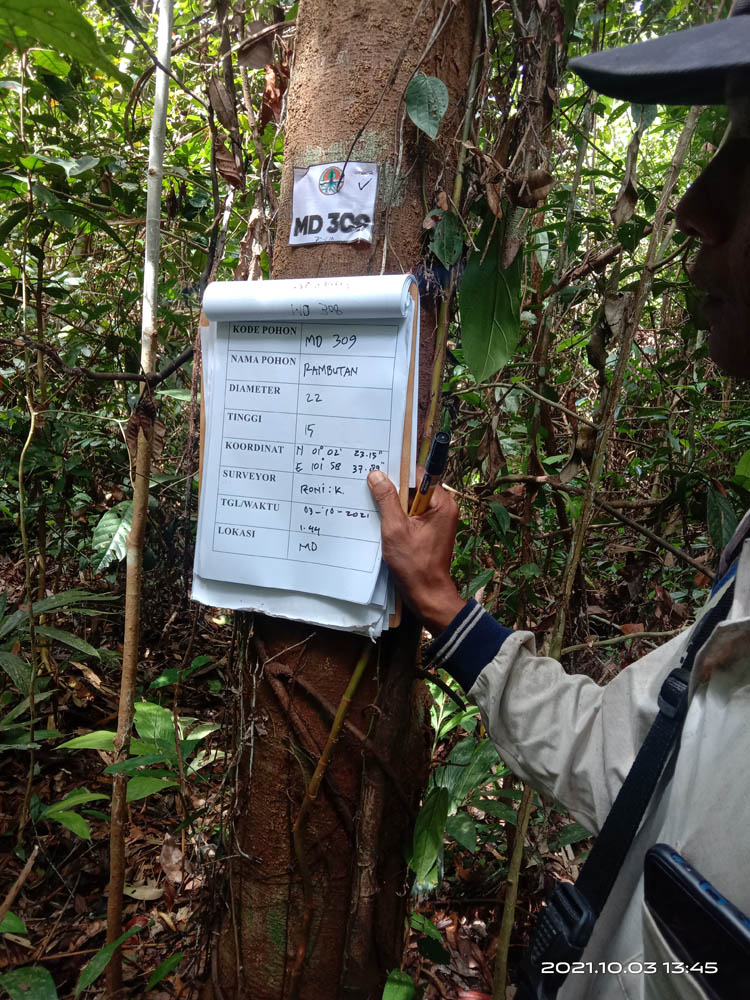 MD 309
MD 308
KODE POHON MD 309
NAMA POHON RAMBUTAN
DIAMETER 22
TINGGI 15
KOORDINAT N 01° 02' 23.15"
E 101° 58 37.89"
SURVEYOR RONI : K.
TGL/WAKTU 03-'10-2021
1.44
LOKASI MD
2021.10.03 13:45